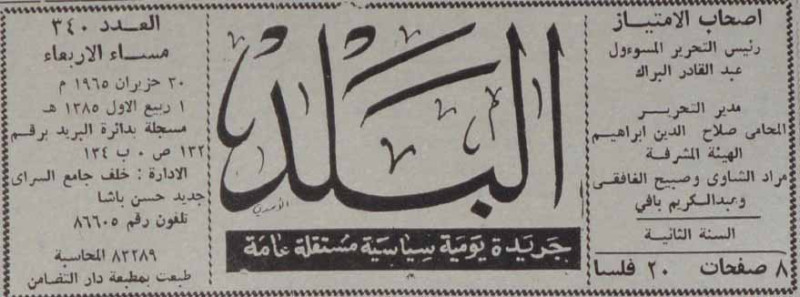 اصحاب الامتياز
رئيس التحرير المسوءول
عبد القادر البراك
مدير التحرير
المحامى صلاح الدين ابراهيم
الهيئة المشرفة
مراد الشاوى وصبيح الغافقى
وعبدالكريم بافي
السنة الثانية
٨ صفحات ٢٠ فلسا
البلد
جريدة يومية سياسية مستقلة عامة
العدد ٣٤٠
مساء الاربعاء
٣٠ حزيران ١٩٦٥ م
١ ربيع الاول ١٣٨٥ هـ
مسجلة بدائرة البريد برقم
١٣٢ ص ٠ ب ١٣٤
الادارة : خلف جامع السراى
جديد حسن باشا
تلفون رقم ٨٦٦٠٥
٨٣٢٨٩ المحاسبة
طبعت بمطبعة دار التضامن